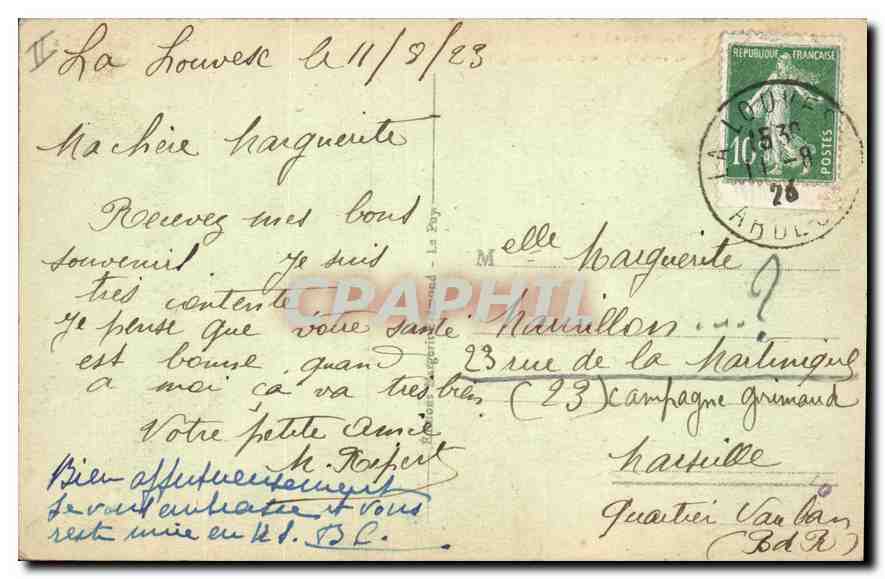 II
La Louvesc le 11/8/23
Ma chère Marguerite
Recevez mes bons
souvenirs Je suis
très contente
Je pense que votre santé
est bonne, quand
a moi ça va très bien
Votre petite amie
M. Ripert
Bien affectueusement
Je vous embrasse et vous
reste unie en N.S. B.C.
Editions Margerit-Brémond - Le Puy
REPUBLIQUE FRANÇAISE
10
POSTES
LA LOUVESC
15 30
11 - 8
23
ARDECHE
Melle Marguerite
...?
23 rue de la Martinique
(23) campagne Grimaud
Marseille
Quartier Vauban
(B d R)
CPAPHIL